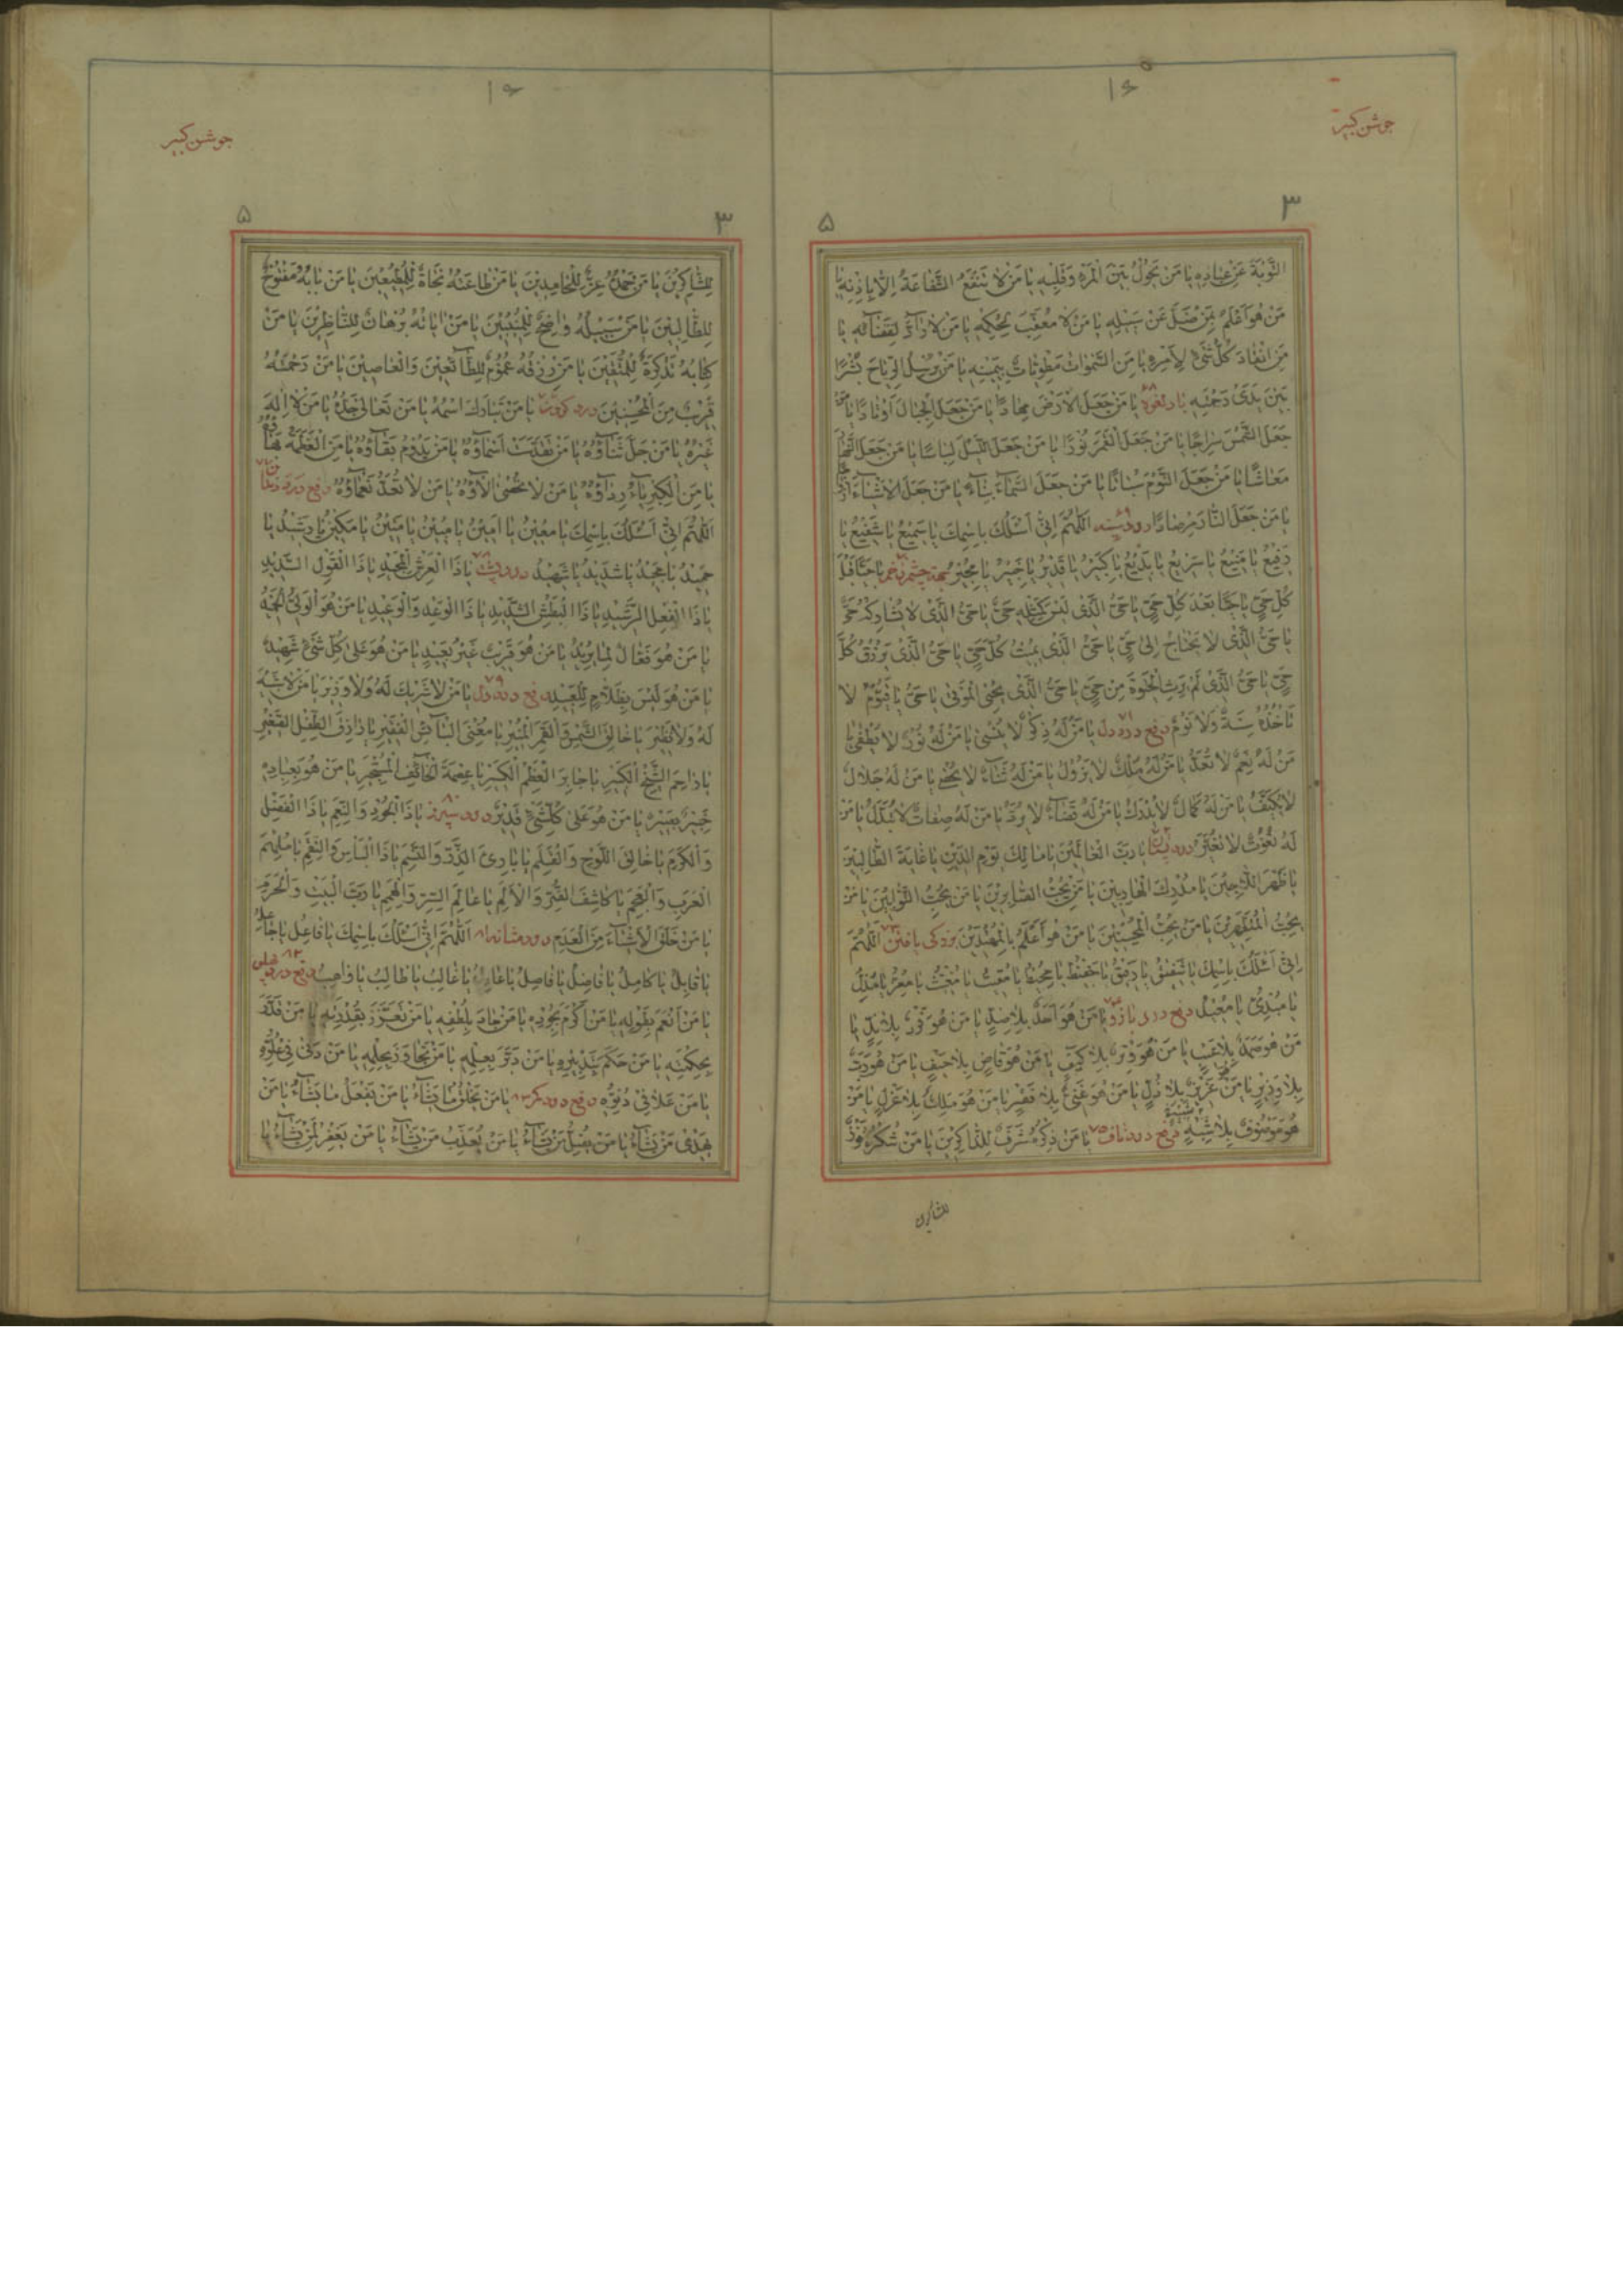 جوشن کبیر
۱۶۵
۳
۵
التَّوْبَةَ عَنْ عِبَادِهِ يَا مَنْ يَحُولُ بَيْنَ الْمَرْءِ وَقَلْبِهِ يَا مَنْ لَا تَنْفَعُ الشَّفَاعَةُ إِلَّا بِإِذْنِهِ يَا
مَنْ هُوَ أَعْلَمُ بِمَنْ ضَلَّ عَنْ سَبِيلِهِ يَا مَنْ لَا مُعَقِّبَ لِحُكْمِهِ يَا مَنْ لَا رَادَّ لِقَضَائِهِ يَا
مَنِ انْقَادَ كُلُّ شَيْءٍ لِأَمْرِهِ يَا مَنِ السَّمٰوَاتُ مَطْوِيَّاتٌ بِيَمِينِهِ يَا مَنْ يُرْسِلُ الرِّيَاحَ بُشْرًا
بَيْنَ يَدَيْ رَحْمَتِهِ باد لقوه ۶۸ يَا مَنْ جَعَلَ الْأَرْضَ مِهَادًا يَا مَنْ جَعَلَ الْجِبَالَ أَوْتَادًا يَا مَنْ
جَعَلَ الشَّمْسَ سِرَاجًا يَا مَنْ جَعَلَ الْقَمَرَ نُورًا يَا مَنْ جَعَلَ اللَّيْلَ لِبَاسًا يَا مَنْ جَعَلَ النَّهَارَ
مَعَاشًا يَا مَنْ جَعَلَ النَّوْمَ سُبَاتًا يَا مَنْ جَعَلَ السَّمَاءَ بِنَاءً يَا مَنْ جَعَلَ الْأَشْيَاءَ أَزْوَاجًا
يَا مَنْ جَعَلَ النَّارَ مِرْصَادًا درد سینه ۶۹ اَللّٰهُمَّ إِنِّي أَسْئَلُكَ بِاسْمِكَ يَا سَمِيعُ يَا شَفِيعُ يَا
رَفِيعُ يَا مَنِيعُ يَا سَرِيعُ يَا بَدِيعُ يَا كَبِيرُ يَا قَدِيرُ يَا خَبِيرُ يَا مُجِيرُ بجهة چشم زخم ۷۰ يَا حَيًّا قَبْلَ
كُلِّ حَيٍّ يَا حَيًّا بَعْدَ كُلِّ حَيٍّ يَا حَيُّ الَّذِي لَيْسَ كَمِثْلِهِ حَيٌّ يَا حَيُّ الَّذِي لَا يُشَارِكُهُ حَيٌّ
يَا حَيُّ الَّذِي لَا يَحْتَاجُ إِلَى حَيٍّ يَا حَيُّ الَّذِي يُمِيتُ كُلَّ حَيٍّ يَا حَيُّ الَّذِي يَرْزُقُ كُلَّ
حَيٍّ يَا حَيُّ الَّذِي لَمْ يَرِثِ الْحَيٰوةَ مِنْ حَيٍّ يَا حَيُّ الَّذِي يُحْيِي الْمَوْتٰى يَا حَيُّ يَا قَيُّومُ لَا
تَأْخُذُهُ سِنَةٌ وَلَا نَوْمٌ دفع درد دل ۷۱ يَا مَنْ لَهُ ذِكْرٌ لَا يُنْسٰى يَا مَنْ لَهُ نُورٌ لَا يُطْفٰى يَا
مَنْ لَهُ نِعَمٌ لَا تُعَدُّ يَا مَنْ لَهُ مُلْكٌ لَا يَزُولُ يَا مَنْ لَهُ ثَنَاءٌ لَا يُحْصٰى يَا مَنْ لَهُ جَلَالٌ
لَا يُكَيَّفُ يَا مَنْ لَهُ كَمَالٌ لَا يُدْرَكُ يَا مَنْ لَهُ قَضَاءٌ لَا يُرَدُّ يَا مَنْ لَهُ صِفَاتٌ لَا تُبَدَّلُ يَا مَنْ
لَهُ نُعُوتٌ لَا تُغَيَّرُ درد پستان ۷۲ يَا رَبَّ الْعَالَمِينَ يَا مَالِكَ يَوْمِ الدِّينِ يَا غَايَةَ الطَّالِبِينَ
يَا ظَهْرَ اللَّاجِينَ يَا مُدْرِكَ الْهَارِبِينَ يَا مَنْ يُحِبُّ الصَّابِرِينَ يَا مَنْ يُحِبُّ التَّوَّابِينَ يَا مَنْ
يُحِبُّ الْمُتَطَهِّرِينَ يَا مَنْ يُحِبُّ الْمُحْسِنِينَ يَا مَنْ هُوَ أَعْلَمُ بِالْمُهْتَدِينَ بزرگی یافتن ۷۳ اَللّٰهُمَّ
إِنِّي أَسْئَلُكَ بِاسْمِكَ يَا شَفِيقُ يَا رَفِيقُ يَا حَفِيظُ يَا مُحِيطُ يَا مُقِيتُ يَا مُغِيثُ يَا مُعِزُّ يَا مُذِلُّ
يَا مُبْدِئُ يَا مُعِيدُ دفع درد بازو ۷۴ يَا مَنْ هُوَ أَحَدٌ بِلَا ضِدٍّ يَا مَنْ هُوَ فَرْدٌ بِلَا نِدٍّ يَا
مَنْ هُوَ صَمَدٌ بِلَا عَيْبٍ يَا مَنْ هُوَ وِتْرٌ بِلَا كَيْفٍ يَا مَنْ هُوَ قَاضٍ بِلَا حَيْفٍ يَا مَنْ هُوَ رَبٌّ
بِلَا وَزِيرٍ يَا مَنْ هُوَ عَزِيزٌ بِلَا ذُلٍّ يَا مَنْ هُوَ غَنِيٌّ بِلَا فَقْرٍ يَا مَنْ هُوَ مَلِكٌ بِلَا عَزْلٍ يَا مَنْ
هُوَ مَوْصُوفٌ بِلَا شَبِيهٍ دفع درد ناف ۷۵ يَا مَنْ ذِكْرُهُ شَرَفٌ لِلذَّاكِرِينَ يَا مَنْ شُكْرُهُ فَوْزٌ
للشاکرین
جوشن کبیر
۱۶
۳
۵
لِلشَّاكِرِينَ يَا مَنْ حَمْدُهُ عِزٌّ لِلْحَامِدِينَ يَا مَنْ طَاعَتُهُ نَجَاةٌ لِلْمُطِيعِينَ يَا مَنْ بَابُهُ مَفْتُوحٌ
لِلطَّالِبِينَ يَا مَنْ سَبِيلُهُ وَاضِحٌ لِلْمُنِيبِينَ يَا مَنْ اٰيَاتُهُ بُرْهَانٌ لِلنَّاظِرِينَ يَا مَنْ
كِتَابُهُ تَذْكِرَةٌ لِلْمُتَّقِينَ يَا مَنْ رِزْقُهُ عُمُومٌ لِلطَّائِعِينَ وَالْعَاصِينَ يَا مَنْ رَحْمَتُهُ
قَرِيبٌ مِنَ الْمُحْسِنِينَ درد گرده ۷۶ يَا مَنْ تَبَارَكَ اسْمُهُ يَا مَنْ تَعَالٰى جَدُّهُ يَا مَنْ لَا إِلٰهَ
غَيْرُهُ يَا مَنْ جَلَّ ثَنَاؤُهُ يَا مَنْ تَقَدَّسَتْ أَسْمَاؤُهُ يَا مَنْ يَدُومُ بَقَاؤُهُ يَا مَنِ الْعَظَمَةُ بَهَاؤُهُ
يَا مَنِ الْكِبْرِيَاءُ رِدَاؤُهُ يَا مَنْ لَا تُحْصٰى اٰلَاؤُهُ يَا مَنْ لَا تُعَدُّ نَعْمَاؤُهُ دفع درد
اَللّٰهُمَّ إِنِّي أَسْئَلُكَ بِاسْمِكَ يَا مُعِينُ يَا أَمِينُ يَا مُبِينُ يَا مَتِينُ يَا مَكِينُ يَا رَشِيدُ يَا
حَمِيدُ يَا مَجِيدُ يَا شَدِيدُ يَا شَهِيدُ درد پشت ۷۸ يَا ذَا الْعَرْشِ الْمَجِيدِ يَا ذَا الْقَوْلِ السَّدِيدِ
يَا ذَا الْفِعْلِ الرَّشِيدِ يَا ذَا الْبَطْشِ الشَّدِيدِ يَا ذَا الْوَعْدِ وَالْوَعِيدِ يَا مَنْ هُوَ الْوَلِيُّ الْحَمِيدُ
يَا مَنْ هُوَ فَعَّالٌ لِمَا يُرِيدُ يَا مَنْ هُوَ قَرِيبٌ غَيْرُ بَعِيدٍ يَا مَنْ هُوَ عَلَى كُلِّ شَيْءٍ شَهِيدٌ
يَا مَنْ هُوَ لَيْسَ بِظَلَّامٍ لِلْعَبِيدِ دفع درد دل ۷۹ يَا مَنْ لَا شَرِيكَ لَهُ وَلَا وَزِيرَ يَا مَنْ لَا شَبِيهَ
لَهُ وَلَا نَظِيرَ يَا خَالِقَ الشَّمْسِ وَالْقَمَرِ الْمُنِيرِ يَا مُغْنِيَ الْبَائِسِ الْفَقِيرِ يَا رَازِقَ الطِّفْلِ الصَّغِيرِ
يَا رَاحِمَ الشَّيْخِ الْكَبِيرِ يَا جَابِرَ الْعَظْمِ الْكَسِيرِ يَا عِصْمَةَ الْخَائِفِ الْمُسْتَجِيرِ يَا مَنْ هُوَ بِعِبَادِهِ
خَبِيرٌ بَصِيرٌ يَا مَنْ هُوَ عَلَى كُلِّ شَيْءٍ قَدِيرٌ درد سپرز ۸۰ يَا ذَا الْجُودِ وَالنِّعَمِ يَا ذَا الْفَضْلِ
وَالْكَرَمِ يَا خَالِقَ اللَّوْحِ وَالْقَلَمِ يَا بَارِئَ الذَّرِّ وَالنَّسَمِ يَا ذَا الْبَأْسِ وَالنِّقَمِ يَا مُلْهِمَ
الْعَرَبِ وَالْعَجَمِ يَا كَاشِفَ الضُّرِّ وَالْأَلَمِ يَا عَالِمَ السِّرِّ وَالْهِمَمِ يَا رَبَّ الْبَيْتِ وَالْحَرَمِ
يَا مَنْ خَلَقَ الْأَشْيَاءَ مِنَ الْعَدَمِ درد مثانه ۸۱ اَللّٰهُمَّ إِنِّي أَسْئَلُكَ بِاسْمِكَ يَا فَاعِلُ يَا جَاعِلُ
يَا قَابِلُ يَا كَامِلُ يَا فَاضِلُ يَا فَاصِلُ يَا عَادِلُ يَا غَالِبُ يَا طَالِبُ يَا وَاهِبُ دفع درد ۸۲
يَا مَنْ أَنْعَمَ بِطَوْلِهِ يَا مَنْ أَكْرَمَ بِجُودِهِ يَا مَنْ جَادَ بِلُطْفِهِ يَا مَنْ تَعَزَّزَ بِقُدْرَتِهِ يَا مَنْ قَدَّرَ
بِحِكْمَتِهِ يَا مَنْ حَكَمَ بِتَدْبِيرِهِ يَا مَنْ دَبَّرَ بِعِلْمِهِ يَا مَنْ تَجَاوَزَ بِحِلْمِهِ يَا مَنْ دَنٰى فِي عُلُوِّهِ
يَا مَنْ عَلَا فِي دُنُوِّهِ دفع درد کمر ۸۳ يَا مَنْ يَخْلُقُ مَا يَشَاءُ يَا مَنْ يَفْعَلُ مَا يَشَاءُ يَا مَنْ
يَهْدِي مَنْ يَشَاءُ يَا مَنْ يُضِلُّ مَنْ يَشَاءُ يَا مَنْ يُعَذِّبُ مَنْ يَشَاءُ يَا مَنْ يَغْفِرُ لِمَنْ يَشَاءُ يَا